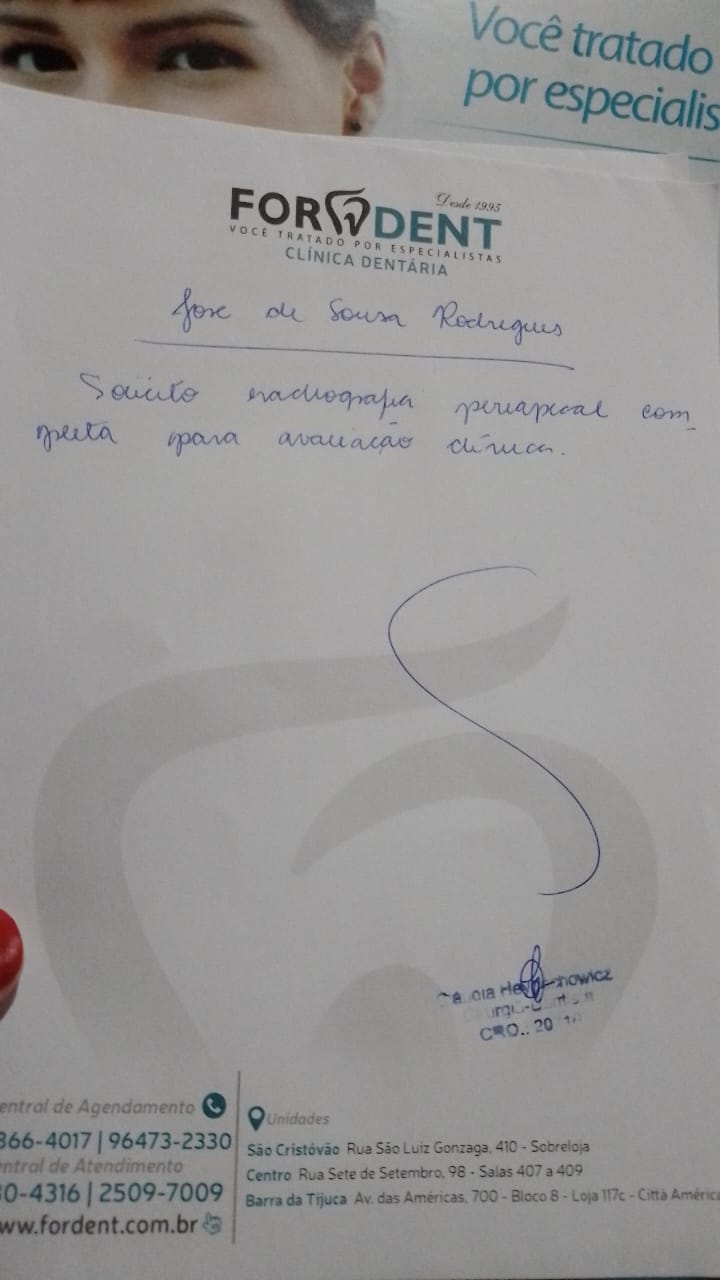 Você tratado
por especialis
FORDENT
Desde 1995
VOCÊ TRATADO POR ESPECIALISTAS
CLÍNICA DENTÁRIA
Jose de Sousa Rodrigues
Solicito radiografia periapical com-
pleta para avaliação clínica.
CRO
entral de Agendamento
366-4017 | 96473-2330
entral de Atendimento
0-4316 | 2509-7009
ww.fordent.com.br
Unidades
São Cristóvão Rua São Luiz Gonzaga, 410 - Sobreloja
Centro Rua Sete de Setembro, 98 - Salas 407 a 409
Barra da Tijuca Av. das Américas, 700 - Bloco 8 - Loja 117c - Città Améric